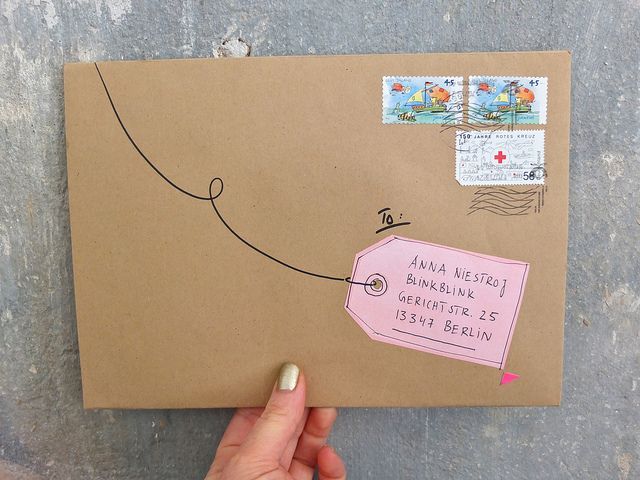 45
45
150 JAHRE ROTES KREUZ
58
To:
ANNA NIESTROJ
BLINKBLINK
GERICHTSTR. 25
13347 BERLIN